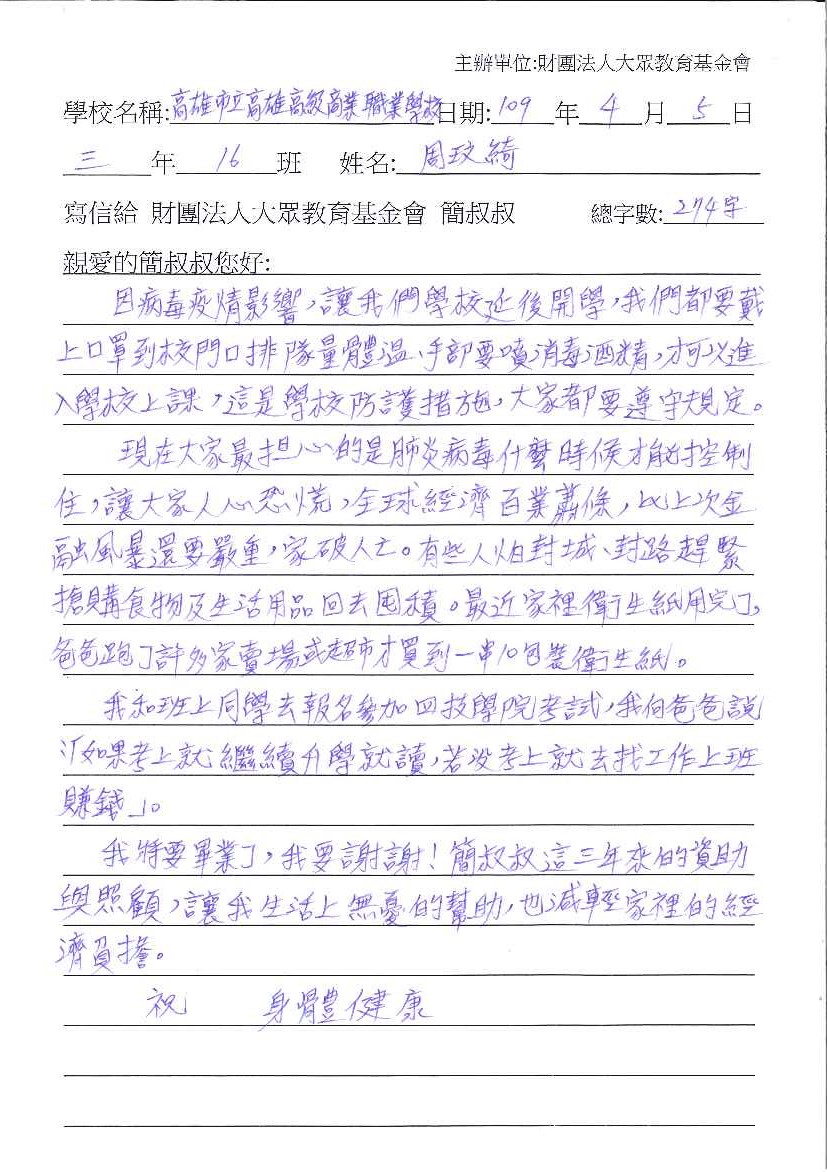 主辦單位:財團法人大眾教育基金會
學校名稱:高雄市立高雄高級商業職業學校日期:109年4月5日
三年16班 姓名:周玟綺
寫信給 財團法人大眾教育基金會 簡叔叔 總字數:274字
親愛的簡叔叔您好:
因病毒疫情影響,讓我們學校延後開學,我們都要戴
上口罩到校門口排隊量體溫、手部要噴消毒酒精,才可以進
入學校上課,這是學校防護措施,大家都要遵守規定。
現在大家最担心的是肺炎病毒什麼時候才能控制
住,讓大家人心恐慌,全球經濟百業蕭條,比上次金
融風暴還要嚴重,家破人亡。有些人怕封城、封路趕緊
搶購食物及生活用品回去囤積。最近家裡衛生紙用完了,
爸爸跑了許多家賣場或超市才買到一串10包裝衛生紙。
我和班上同學去報名參加四技學院考試,我向爸爸說
:「如果考上就繼續升學就讀,若沒考上就去找工作上班
賺錢」。
我將要畢業了,我要謝謝!簡叔叔這三年來的資助
與照顧,讓我生活上無憂的幫助,也減輕家裡的經
濟負擔。
祝 身體健康